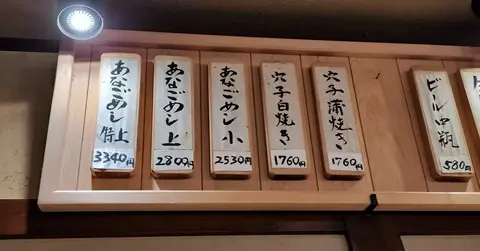 あなごめし 特上
3340円
あなごめし 上
2800円
あなごめし 小
2530円
穴子白焼き
1760円
穴子蒲焼き
1760円
ビール中瓶
580円